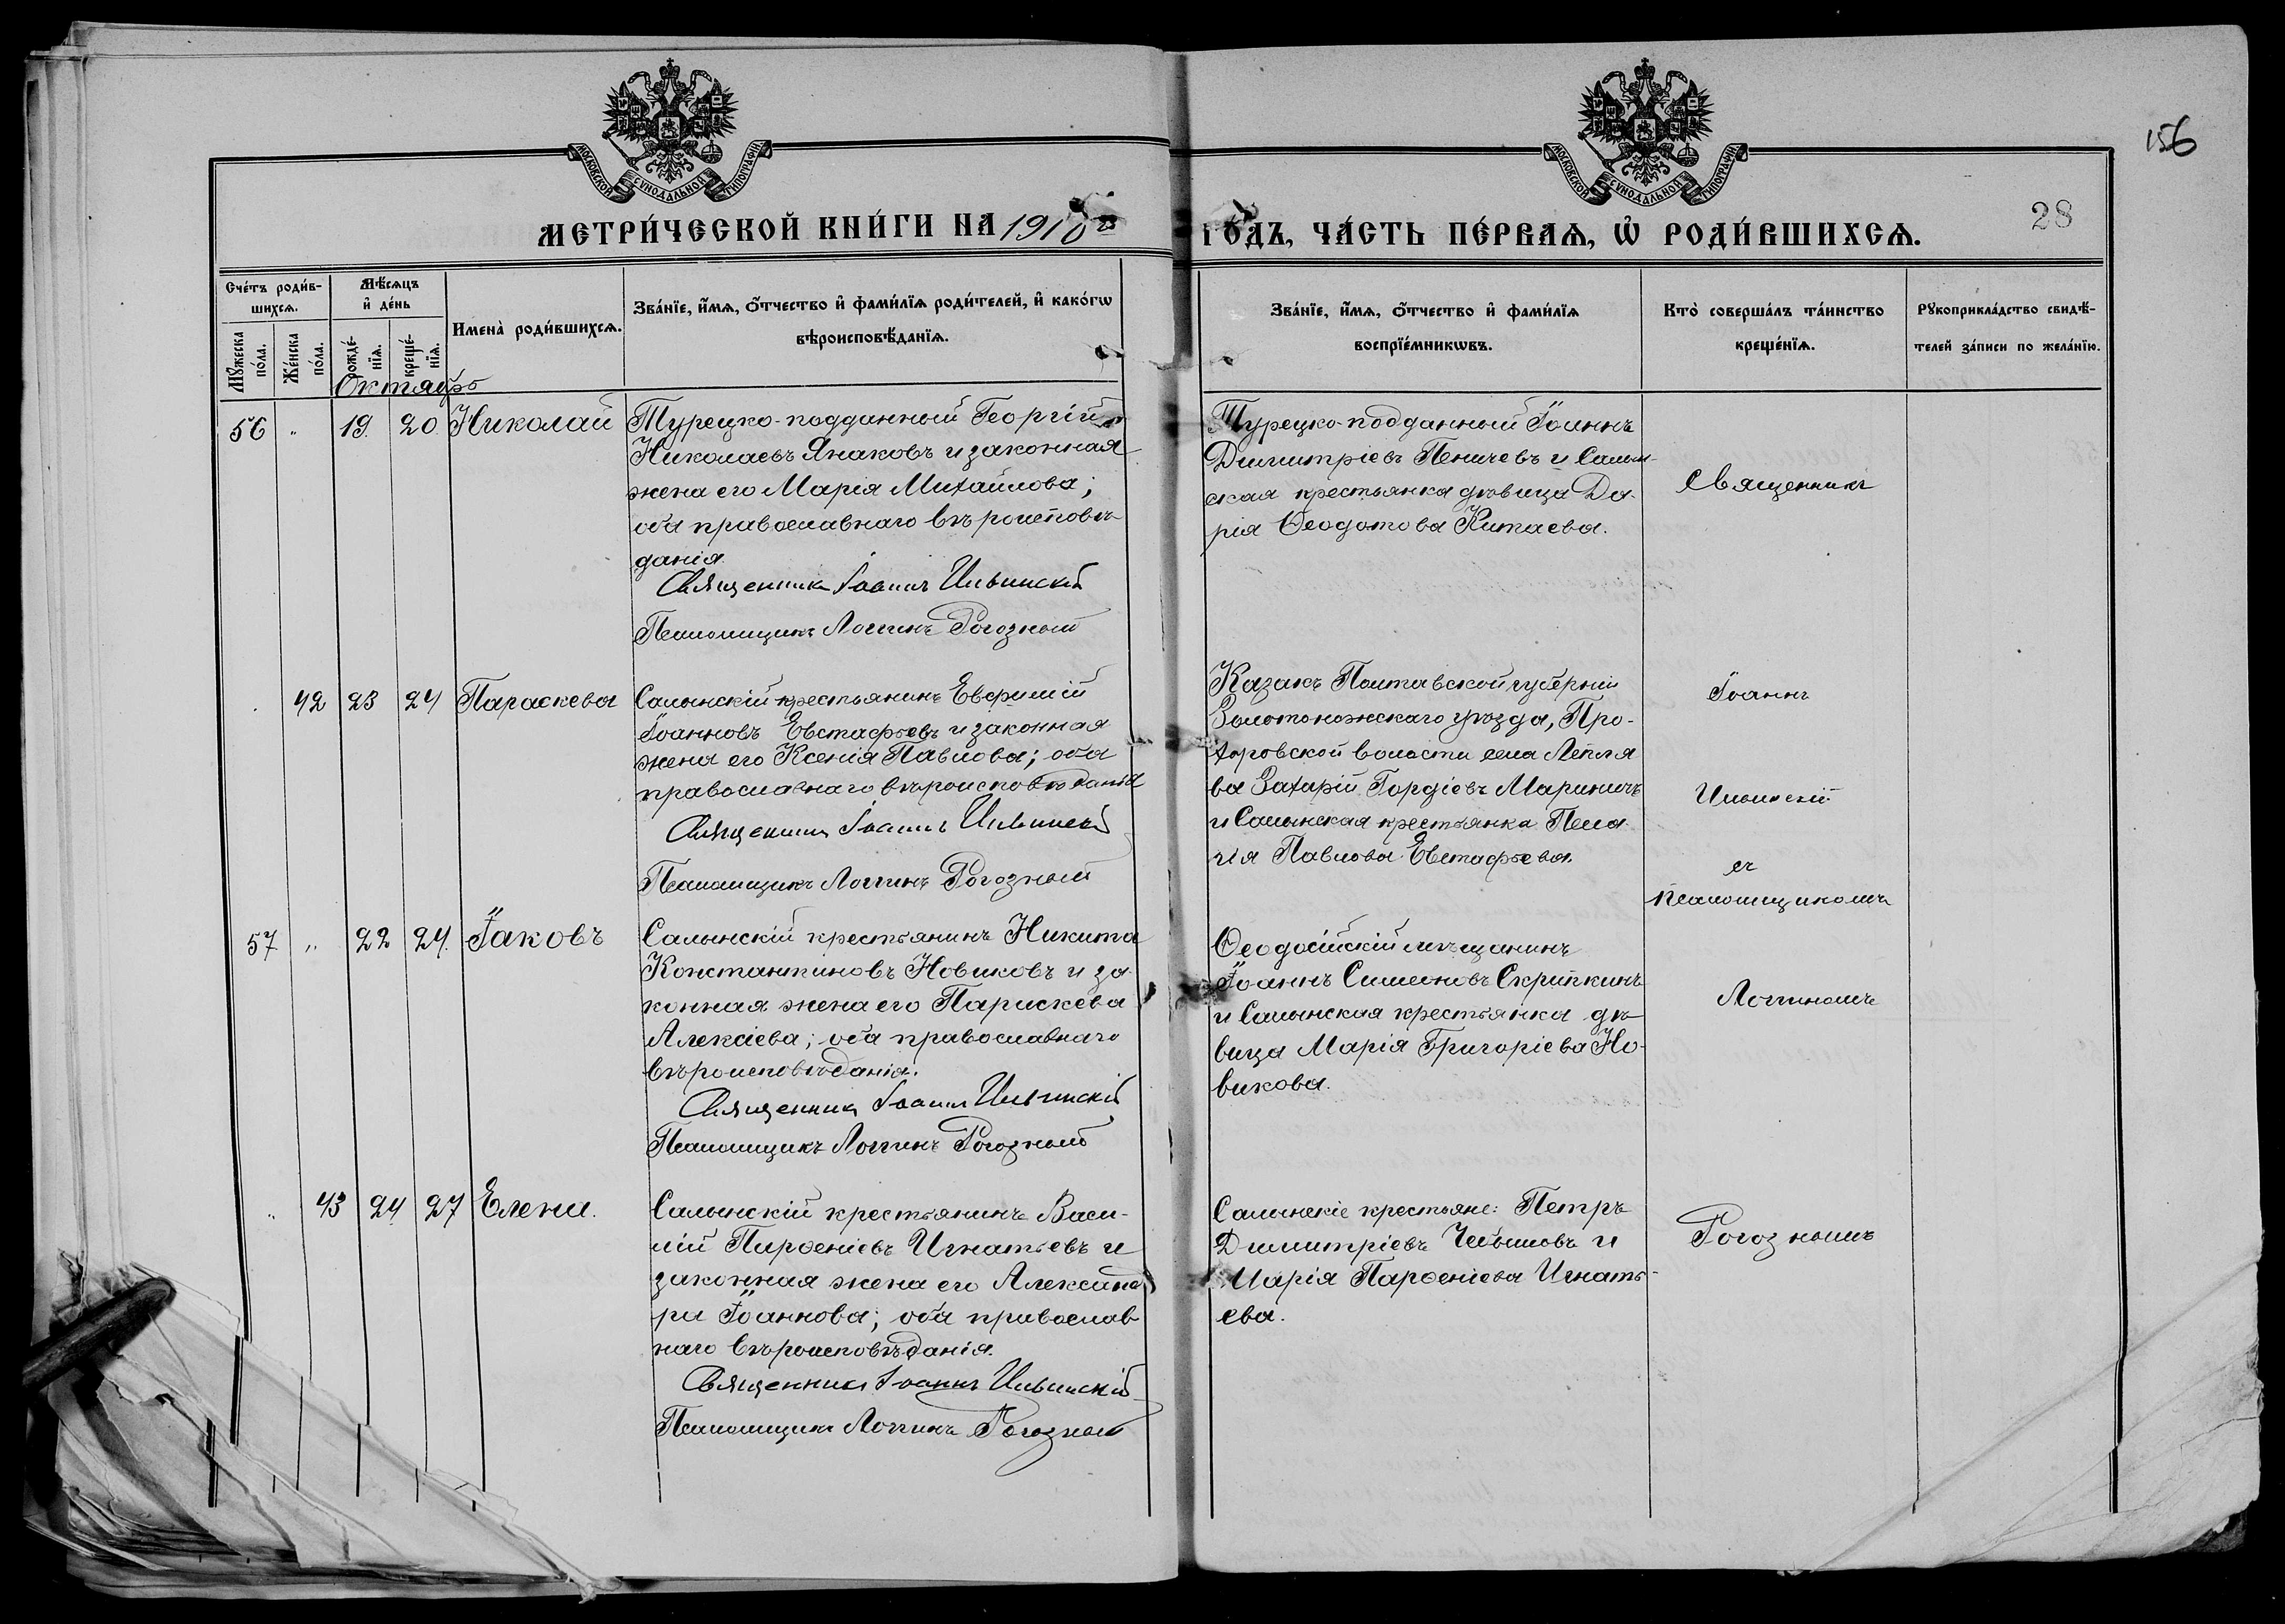 156
МОСКОВСКОЙ СѴНОДАЛЬНОЙ ТИПОГРАФІИ
МОСКОВСКОЙ СѴНОДАЛЬНОЙ ТИПОГРАФІИ
МЕТРИ́ЧЕСКОЙ КНИ́ГИ НА 1910й ГО́ДЪ, ЧА́СТЬ ПЕ́РВАѦ, Ѡ РОДИ́ВШИХСѦ.
28
Сче́тъ роди́в-
шихсѧ.
Мѣ́сяцъ
и҆ де́нь
Мꙋ́жеска
по́ла.
Же́нска
по́ла.
рожде́-
нїѧ.
креще́-
нїѧ.
Имена̀ роди́вшихсѧ.
Зва́нїе, и҆́мѧ, ѻ҆́тчество и҆ фами́лїѧ роди́телей, и҆ како́гѡ
вѣроисповѣ́данїѧ.
Зва́нїе, и҆́мѧ, ѻ҆́тчество и҆ фами́лїѧ
воспрїе́мникѡвъ.
Кто̀ соверша́лъ та́инство
креще́нїѧ.
Рꙋкоприкла́дство свидѣ́-
телей за́писи по жела́нїю.
Октябрь
56 " 19. 20. Николай
Турецко-подданный Георгій
Николаевъ Янаковъ и законная
жена его Марія Михайлова;
оба православнаго вѣроисповѣ-
данія.
Священникъ Іоаннъ Ильинскій
Псаломщикъ Логгинъ Рогозный
Турецко-подданный Іоаннъ
Димитріевъ Пеничевъ и Салын-
ская крестьянка дѣвица Да-
рія Ѳеодотова Китаева.
Священникъ
42 23 24 Параскева
Салынскій крестьянинъ Евфимій
Іоанновъ Евстафьевъ и законная
жена его Ксенія Павлова; оба
православнаго вѣроисповѣданія
Священникъ Іоаннъ Ильинскій
Псаломщикъ Логгинъ Рогозный
Казакъ Полтавской губерніи
Золотоножскаго уѣзда, Про-
хоровской волости села Лепля
ва Захарій Гордіевъ Мариничъ
и Салынская крестьянка Пела-
гія Павлова Евстафьева.
Іоаннъ
Ильинскій
съ
псаломщикомъ
57 " 22 24. Іаковъ
Салынскій крестьянинъ Никита
Константиновъ Новиковъ и за-
конная жена его Параскева
Алексіева; оба православнаго
вѣроисповѣданія.
Священникъ Іоаннъ Ильинскій
Псаломщикъ Логгинъ Рогозный
Ѳеодосійскій мѣщанинъ
Іоаннъ Симеоновъ Скрипкинъ
и Салынская крестьянка дѣ-
вица Марія Григоріева Но-
викова.
Логгиномъ
" 43 24 27 Елена.
Салынскій крестьянинъ Васи-
лій Парѳеніевъ Игнатьевъ и
законная жена его Александ
ра Іоаннова; оба православ
наго вѣроисповѣданія.
Священникъ Іоаннъ Ильинскій
Псаломщикъ Логгинъ Рогозный
Салынскіе крестьяне: Петръ
Димитріевъ и
Марія Парѳеніева Игнать-
ева.
Рогознымъ